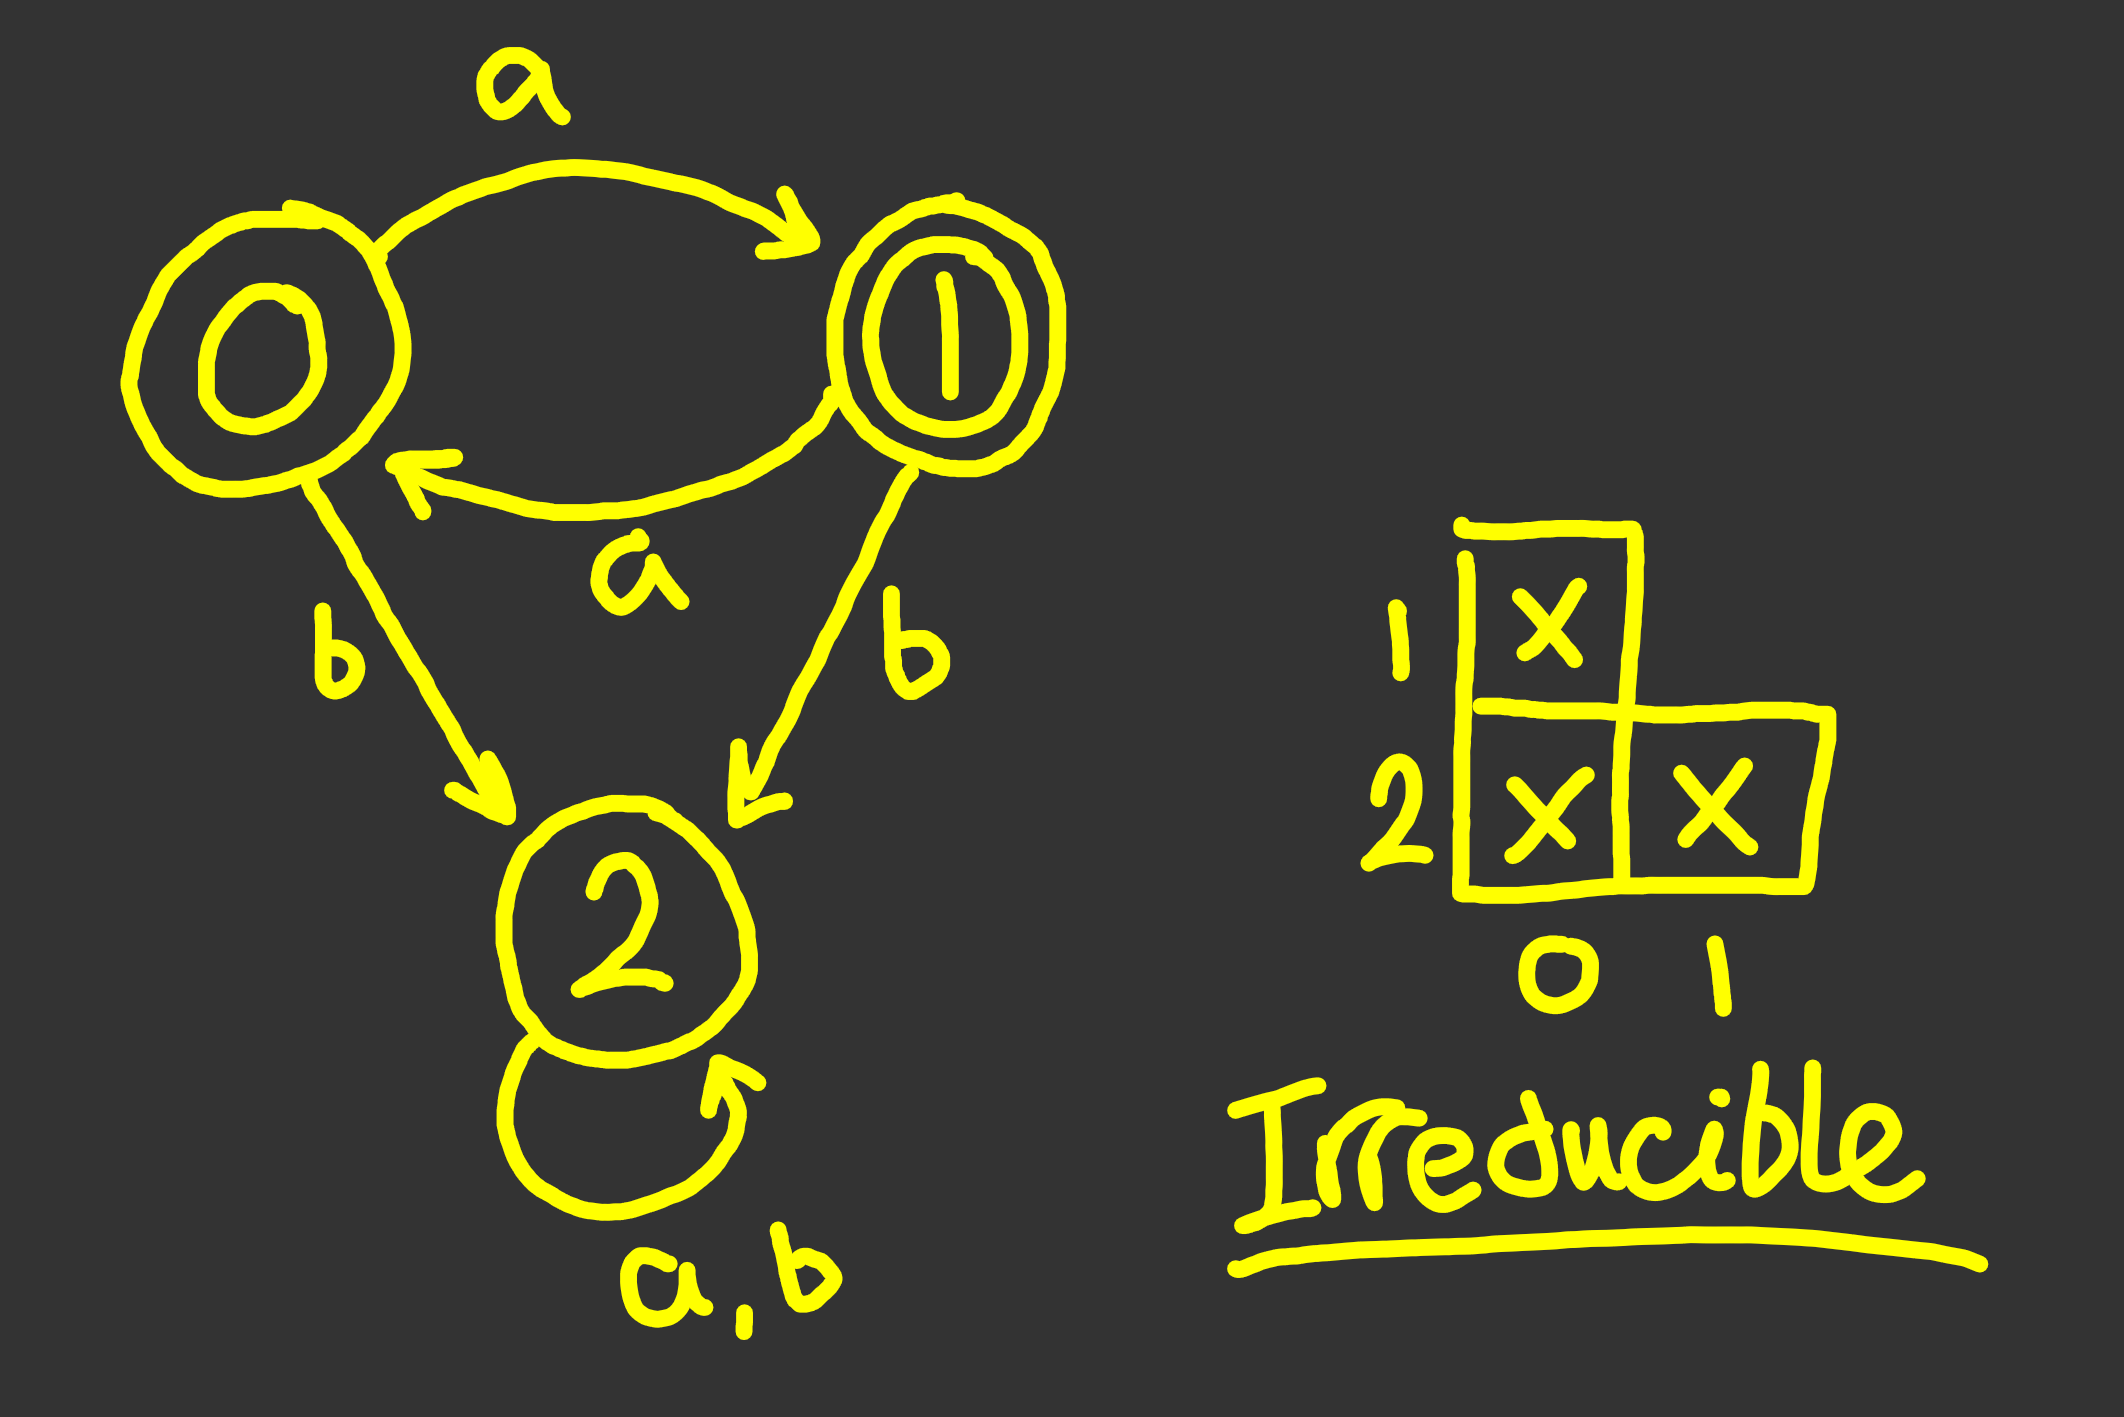 a
0
1
a
b
b
2
a,b
1 x
2 x x
0 1
Irreducible